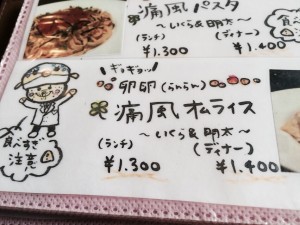 痛風パスタ
〜いくら&明太〜
(ランチ) (ディナー)
¥1.300 ¥1.400
ギョギョッ!
卵卵(らんらん)
痛風オムライス
〜いくら&明太〜
(ランチ) (ディナー)
¥1.300 ¥1.400
食べすぎ
注意